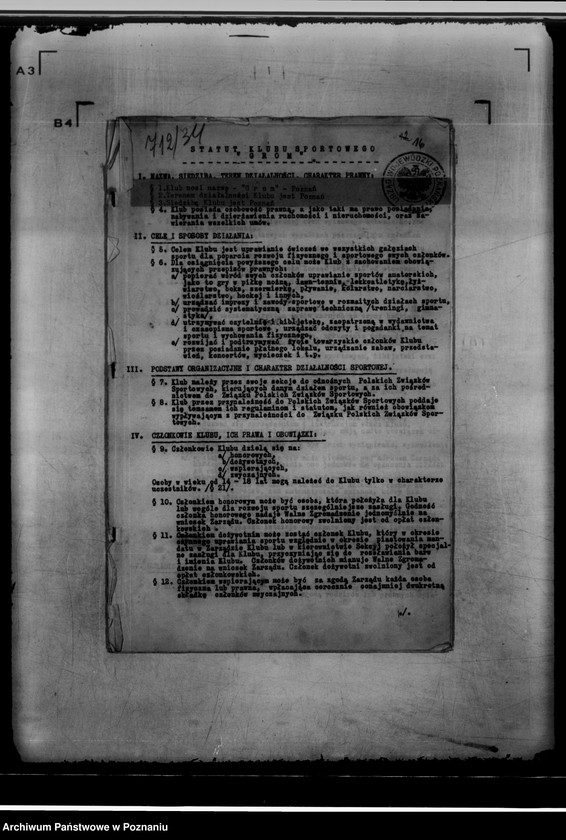 A3
B4
712/34
16
STATUT KLUBU SPORTOWEGO
"GROM".
I. NAZWA, SIEDZIBA, TEREN DZIAŁALNOŚCI, CHARAKTER PRAWNY:
§ 1. Klub nosi nazwę - "Grom" - Poznań
§ 2. Terenem działalności Klubu jest Poznań
§ 3. Siedzibą Klubu jest Poznań
§ 4. Klub posiada osobowość prawną, a jako taki ma prawo posiadania,
nabywania i dzierżawienia ruchomości i nieruchomości, oraz za-
wierania wszelkich umów.
II. CELE I SPOSOBY DZIAŁANIA:
§ 5. Celem Klubu jest uprawianie ćwiczeń we wszystkich gałęziach
sportu dla poparcia rozwoju fizycznego i sportowego swych członków.
§ 6. Dla osiągnięcia powyższego celu może Klub z zachowaniem obowią-
zujących przepisów prawnych:
a/ szerzyć wśród swych członków uprawianie sportów amatorskich,
jako to gry w piłkę nożną, lawn-tennis, lekkoatletykę, gry-
sportowe, boks, szermierkę, pływanie, kolarstwo, narciarstwo,
wioślarstwo, hockej i innych,
b/ urządzać imprezy i zawody sportowe w rozmaitych działach sportu,
c/ prowadzić systematyczną zaprawę techniczną /treningi, gimna-
styka/,
d/ utrzymywać czytelnię i bibljotekę, zaopatrzoną w wydawnictwa
i czasopisma sportowe, urządzać odczyty i pogadanki na temat
sportu i wychowania fizycznego,
e/ rozwijać i podtrzymywać życie towarzyskie członków Klubu
przez posiadanie własnego lokalu, urządzanie zabaw, przedsta-
wień, koncertów, wycieczek i t.p.
III. PODSTAWY ORGANIZACYJNE I CHARAKTER DZIAŁALNOŚCI SPORTOWEJ.
§ 7. Klub należy przez swoje sekcje do odnośnych Polskich Związków
Sportowych, kierujących danym działem sportu, a za ich pośred-
nictwem do Związku Polskich Związków Sportowych.
§ 8. Klub przez przynależność do Polskich Związków Sportowych poddaje
się temsamem ich regulaminom i statutom, jak również obowiązkom
wypływającym z przynależności do Związku Polskich Związków Spor-
towych.
IV. CZŁONKOWIE KLUBU, ICH PRAWA I OBOWIĄZKI:
§ 9. Członkowie Klubu dzielą się na:
a/ honorowych,
b/ dożywotnich,
c/ wspierających,
d/ zwyczajnych.
Osoby w wieku od 14 - 18 lat mogą należeć do Klubu tylko w charakterze
uczestników. /§ 21/.
§ 10. Członkiem honorowym może być osoba, która położyła dla Klubu
lub wogóle dla rozwoju sportu szczególniejsze zasługi. Godność
członka honorowego nadaje Walne Zgromadzenie jednomyślnie na
wniosek Zarządu. Członek honorowy zwolniony jest od opłat człon-
kowskich.
§ 11. Członkiem dożywotnim może zostać członek Klubu, który w okresie
czynnego uprawiania sportu względnie w okresie piastowania man-
datu w Zarządzie Klubu lub w kierownictwie Sekcji położył specjal-
ne zasługi dla Klubu, przyczyniając się do rozsławienia barw
i imienia Klubu. Członków dożywotnich mianuje Walne Zgroma-
dzenie na wniosek Zarządu. Członek dożywotni zwolniony jest od
opłat członkowskich.
§ 12. Członkiem wspierającym może być za zgodą Zarządu każda osoba
fizyczna lub prawna, wpłacająca corocznie conajmniej dwukrotną
składkę członków zwyczajnych.
Archiwum Państwowe w Poznaniu